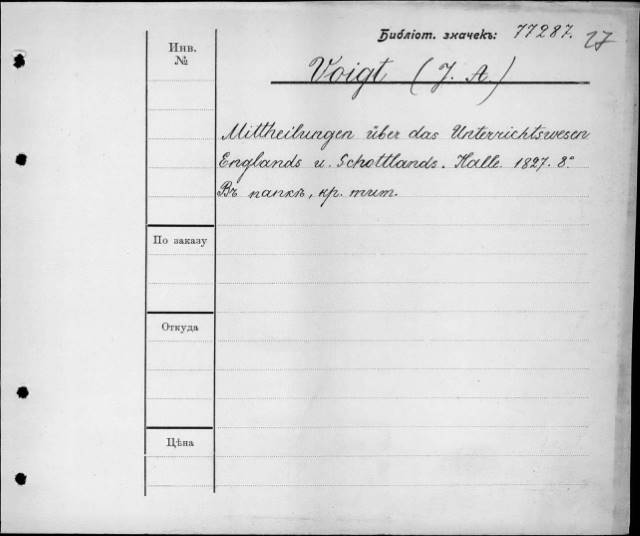 Библіот. значекъ: 77287. 27
Инв.
№
Voigt (J. A.)
Mittheilungen über das Unterrichtswesen
Englands u. Schottlands. Halle. 1827. 8°
Въ папкѣ, кр. тит.
По заказу
Откуда
Цѣна